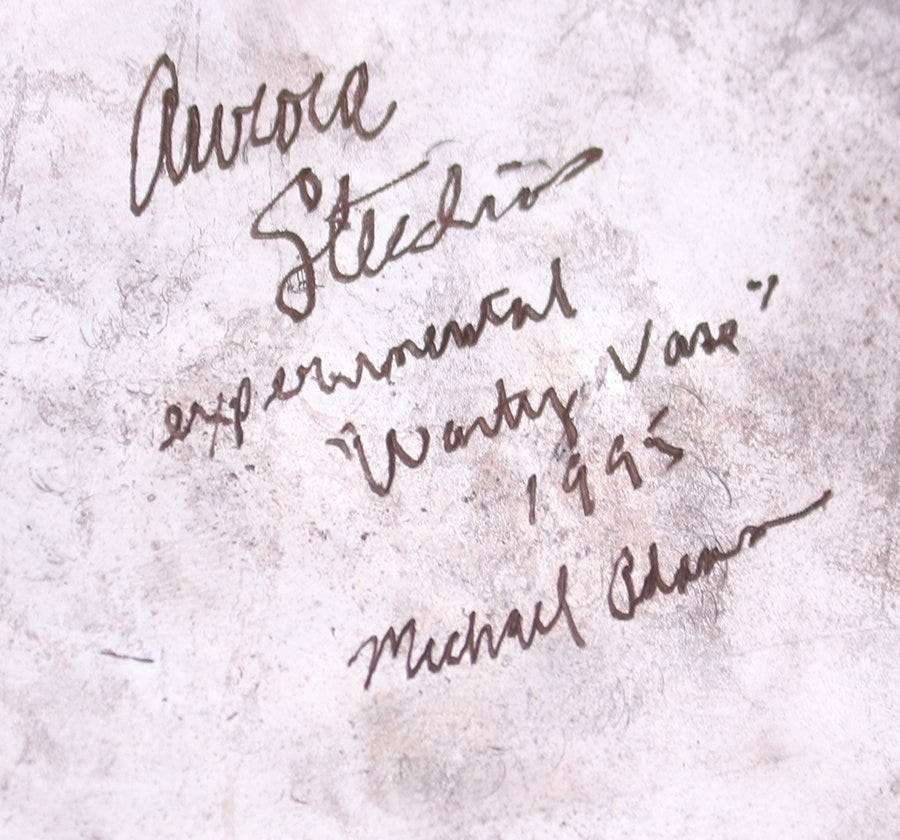 Aurora
Studios
experimental
"Warty Vase"
1995
Michael Adams